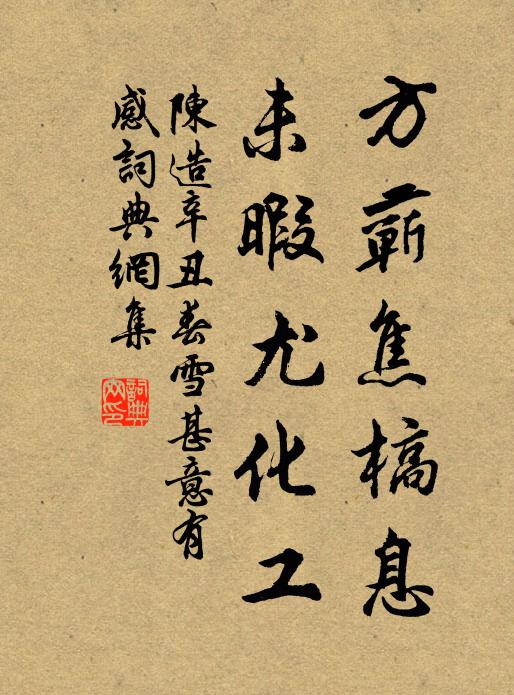 方蘄焦槁息
未暇尤化工
陳造辛丑春雪甚意有
感詞典網集
詞典網印